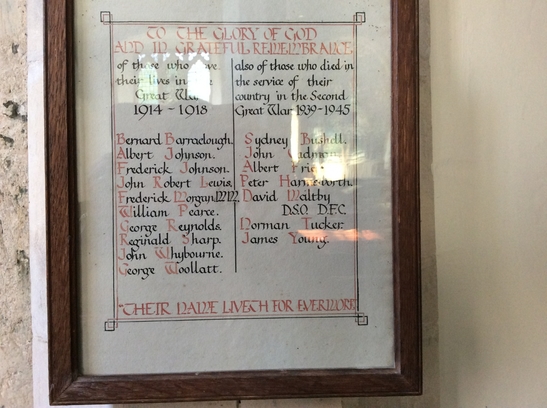 TO THE GLORY OF GOD
AND IN GRATEFUL REMEMBRANCE
of those who gave
their lives in
Great War
1914 ~ 1918
Bernard Barraclough.
Albert Johnson.
Frederick Johnson.
John Robert Lewis.
Frederick Morgan, M.M.
William Pearce.
George Reynolds.
Reginald Sharp.
John Whybourne.
George Woollatt.
also of those who died in
the service of their
country in the Second
Great War 1939-1945
Sydney Bushell.
John
Albert
Peter
David Maltby
D.S.O. D.F.C.
Norman Tucker.
James Young.
"THEIR NAME LIVETH FOR EVERMORE